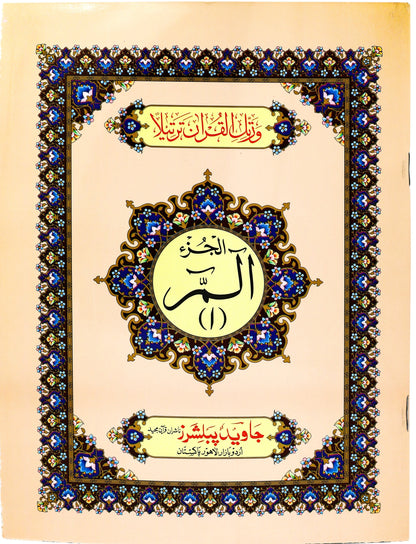 وَرَتِّلِ الْقُرْآنَ تَرْتِيلًا
الجُزء
آلٓمّٓ
(۱)
جاوید پبلشرز ناشران قرآن مجید
اردو بازار لاہور پاکستان